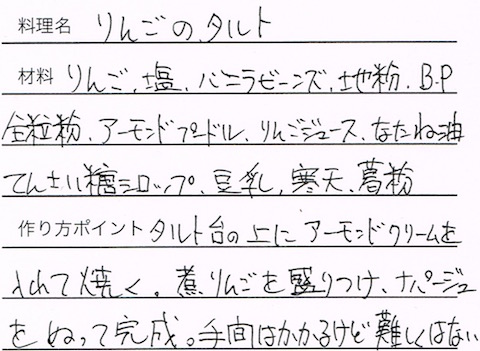 料理名 りんごのタルト
材料 りんご、塩、バニラビーンズ、地粉、B.P
全粒粉、アーモンドプードル、りんごジュース、なたね油
てんさい糖シロップ、豆乳、寒天、葛粉
作り方ポイント タルト台の上に アーモンドクリームを
入れて焼く。煮りんごを盛りつけ、ナパージュ
をぬって完成。手間はかかるけど難しくはない